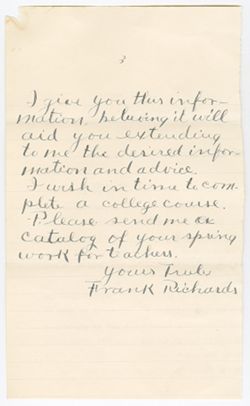 3
I give you this infor-
mation believing it will
aid you extending
to me the desired infor-
mation and advice.
I wish in time to com-
plete a college course.
Please send me a
catalog of your spring
work for teachers.
Yours Truly
Frank Richards